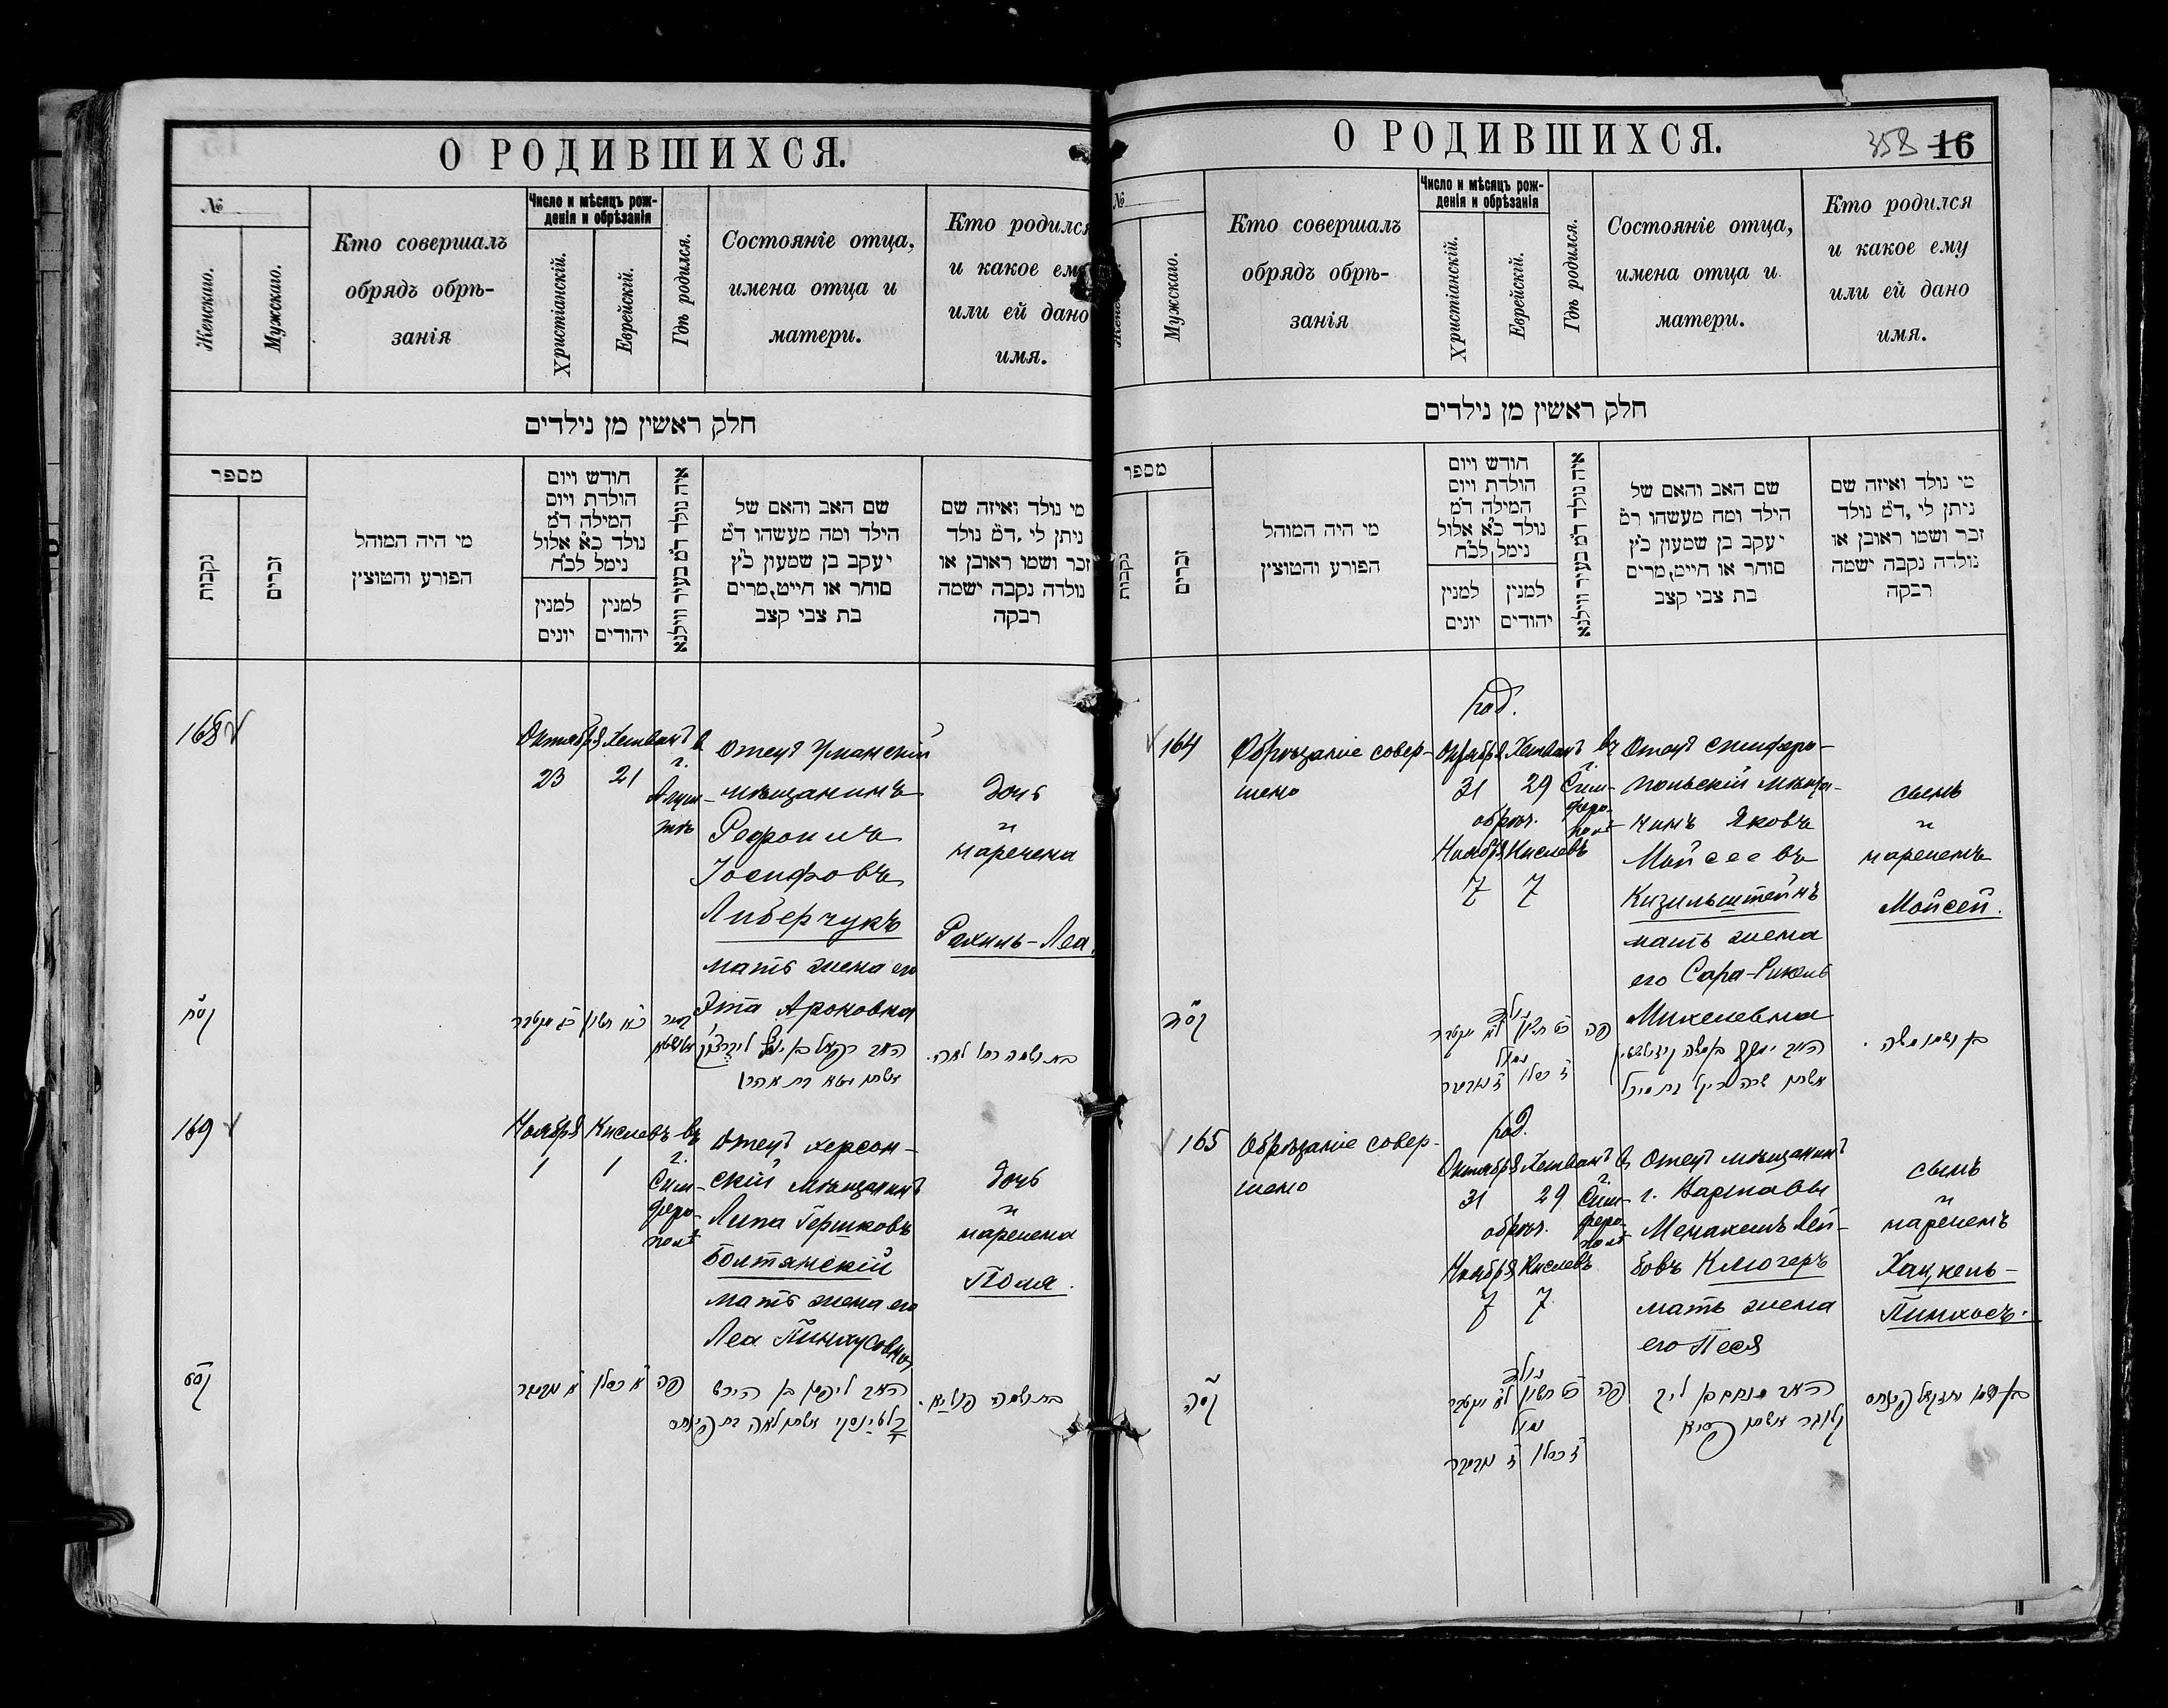 О РОДИВШИХСЯ.
№
Женскаго.
Мужскаго.
Кто совершалъ
обрядъ обрѣ-
занія
Число и мѣсяцъ рож-
денія и обрѣзанія
Христіанскій.
Еврейскій.
Гдѣ родился.
Состояніе отца,
имена отца и
матери.
Кто родился
и какое ему
или ей дано
имя.
חלק ראשין מן נילדים
מספר
נקבות
זכרים
מי היה המוהל
הפורע והמוצץ
חודש ויום
הולדת ויום
המילה ד״מ
נולד כ״א אלול
נימל לכ״ח
למנין
יונים
למנין
יהודים
איה נולד ד״מ בעיר ווילנא
שם האב והאם של
הילד ומה מעשהו ד״מ
יעקב בן שמעון כ״ץ
סוחר או חייט,מרים
בת צבי קצב
מי נולד ואיזה שם
ניתן לי ,ד״מ נולד
זכר ושמו ראובן או
נולדה נקבה ישמה
רבקה
168
Октября
23
Хешванъ
21
в
г.
Алуш-
тѣ
Отецъ Уманскій
мѣщанинъ
Рефоилъ
Іосифовъ
Либерчукъ
мать жена его
Эта Ароновна
Дочь
и
наречена
Рахиль-Леа.
קסח
כ״ג אקטבר
כ״א חשון
אשתו איטא בת אהרן
בת ושמה רחל לאה.
169
Ноября
1
Кислевъ
1
въ
г.
Сим-
феро-
полѣ
Отецъ херсон-
скій мѣщанинъ
Липа Гершковъ
Болтянскій
мать жена его
Леа Пинхусовна
Дочь
и
наречена
Поля.
קסט
א׳ נאיאבר
א׳ כסלו
פה
האב ליפמן בן הירש
אשתו לאה בת פינחס
О РОДИВШИХСЯ.
358 16
№
Женскаго.
Мужскаго.
Кто совершалъ
обрядъ обрѣ-
занія
Число и мѣсяцъ рож-
денія и обрѣзанія
Христіанскій.
Еврейскій.
Гдѣ родился.
Состояніе отца,
имена отца и
матери.
Кто родился
и какое ему
или ей дано
имя.
חלק ראשין מן נילדים
מספר
נקבות
זכרים
מי היה המוהל
הפורע והמוצץ
חודש ויום
הולדת ויום
המילה ד״מ
נולד כ״א אלול
נימל לכ״ח
למנין
יונים
למנין
יהודים
איה נולד ד״מ בעיר ווילנא
שם האב והאם של
הילד ומה מעשהו ד״מ
יעקב בן שמעון כ״ץ
סוחר או חייט,מרים
בת צבי קצב
מי נולד ואיזה שם
ניתן לי ,ד״מ נולד
זכר ושמו ראובן או
נולדה נקבה ישמה
רבקה
164
Обрѣзаніе совер-
шено
род.
Октября
31
Хешванъ
29
обрѣз.
Ноября
7
Кислевъ
7
въ
г.
Сим-
феро-
полѣ
Отецъ симферо-
польскій мѣща-
нинъ Яковъ
Мойсеевъ
Кизильштейнъ
мать жена
его Сара-Рикель
Михелевна
сынъ
и
нареченъ
Мойсей.
קסד
נולד
כ״ט חשון
ל״א אקטבר
נמול
ז׳ כסלו
פה
בן ושמו משה.
165
Обрѣзаніе совер-
шено
род.
Октября
31
Хешванъ
29
обрѣз.
Ноября
7
Кислевъ
7
в
г.
Сим-
феро-
полѣ
Отецъ мѣщанинъ
г. Варшавы
Менахемъ Лей-
бовъ Клюгеръ
мать жена
его Песя
сынъ
и
нареченъ
Хацкель-
Пинхосъ.
קסה
נולד
כ״ט חשון
ל״א אקטבר
נמול
ז׳ כסלו
פה
האב מנחם בן ליב
קלוגר אשתו פעסיא
בן ושמו יחזקאל פינחס